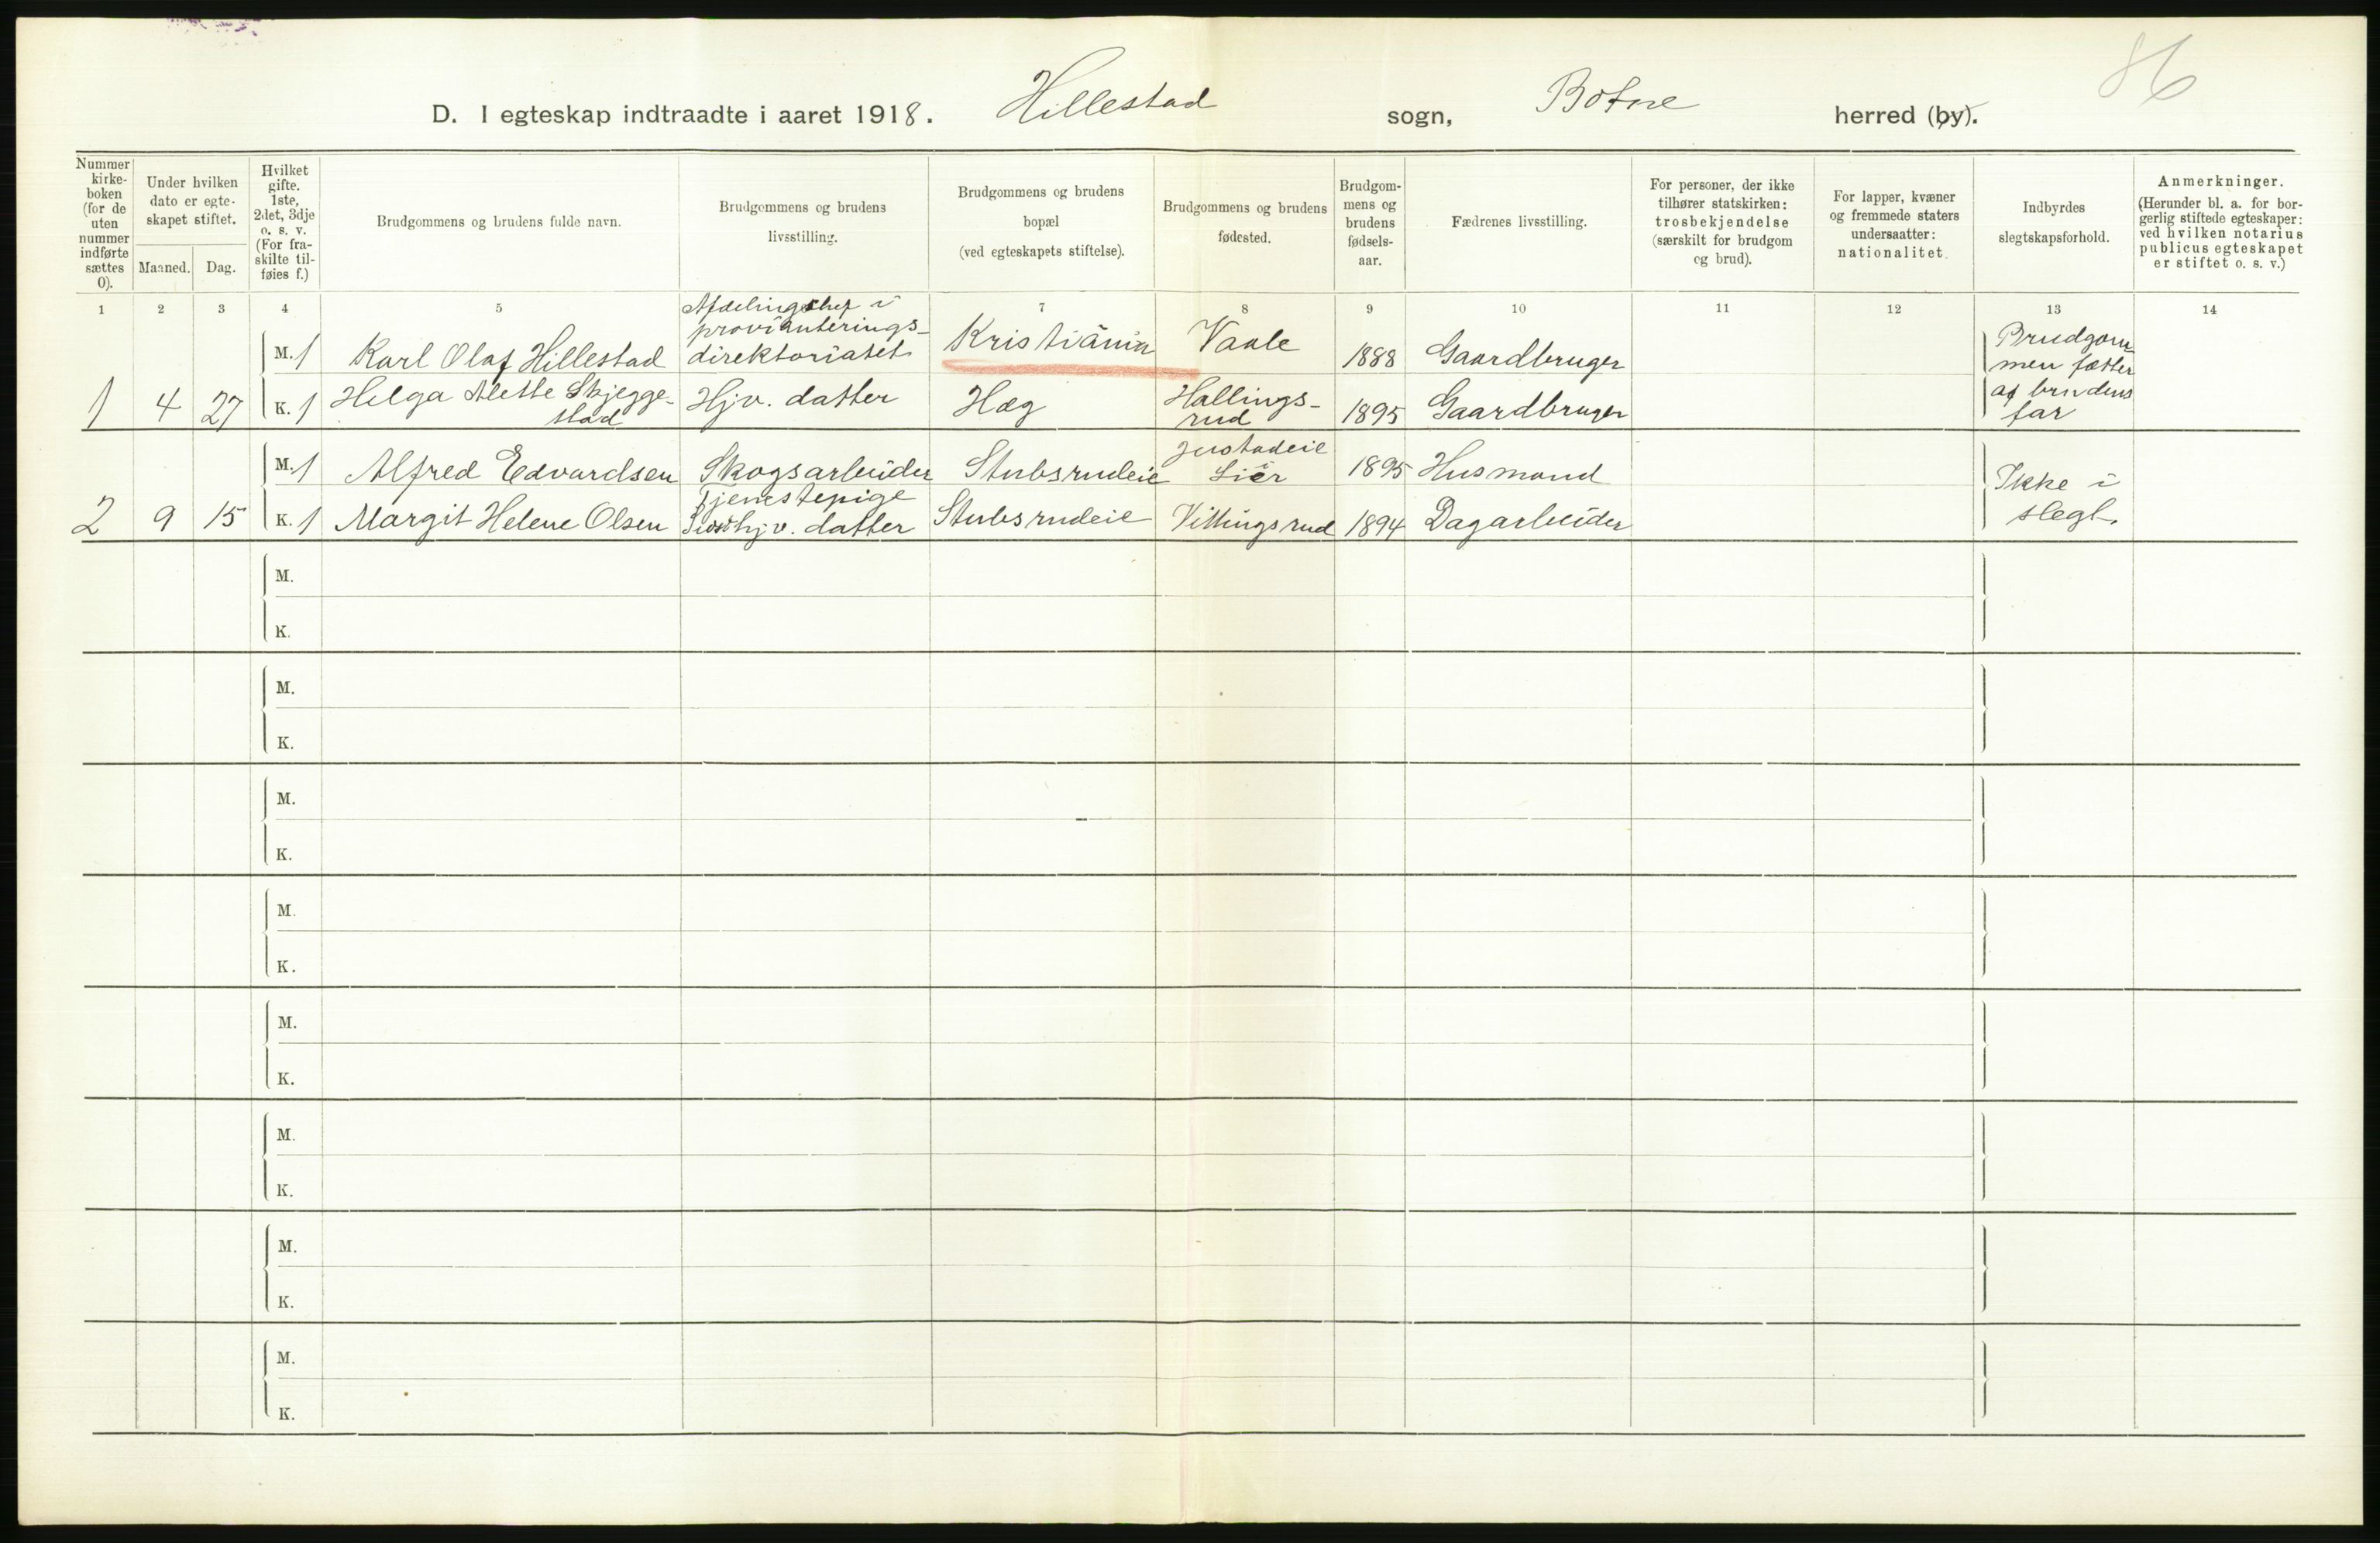 86
D. I egteskap indtraadte i aaret 1918. Hillestad sogn, Botne herred (by).
Nummer kirke-boken (for de uten nummer indførte sættes 0).
Under hvilken dato er egte-skapet stiftet.
Maaned. Dag.
Hvilket gifte. 1ste, 2det, 3dje o. s. v. (For fra-skilte til-føies f.)
Brudgommens og brudens fulde navn.
Brudgommens og brudens livsstilling.
Brudgommens og brudens bopæl (ved egteskapets stiftelse).
Brudgommens og brudens fødested.
Brudgom-mens og brudens fødsels-aar.
Fædrenes livsstilling.
For personer, der ikke tilhører statskirken: trosbekjendelse (særskilt for brudgom og brud).
For lapper, kvæner og fremmede staters undersaatter: nationalitet.
Indbyrdes slegtskapsforhold.
Anmerkninger. (Herunder bl. a. for bor-gerlig stiftede egteskaper: ved hvilken notarius publicus egteskapet er stiftet o. s. v.)
1 2 3 4 5 6 7 8 9 10 11 12 13 14
M. 1 Karl Olaf Hillestad Afdelingschef i provianterings-direktoriatet Kristiania Vaale 1888 Gaardbruger
1 4 27 K. 1 Helga Alette Skjegge-stad Hjv. datter Hæg Hallings-rud 1895 Gaardbruger
Brudgom-men fætter af brudens far
M. 1 Alfred Edvardsen Skogsarbeider Stubsrudeie Lier 1895 Husmand
2 9 15 K. 1 Margit Helene Olsen Tjenestepige hjv. datter Stubsrudeie Vittingsrud 1894 Dagarbeider
Ikke i slegt.
M.
K.
M.
K.
M.
K.
M.
K.
M.
K.
M.
K.
M.
K.
M.
K.